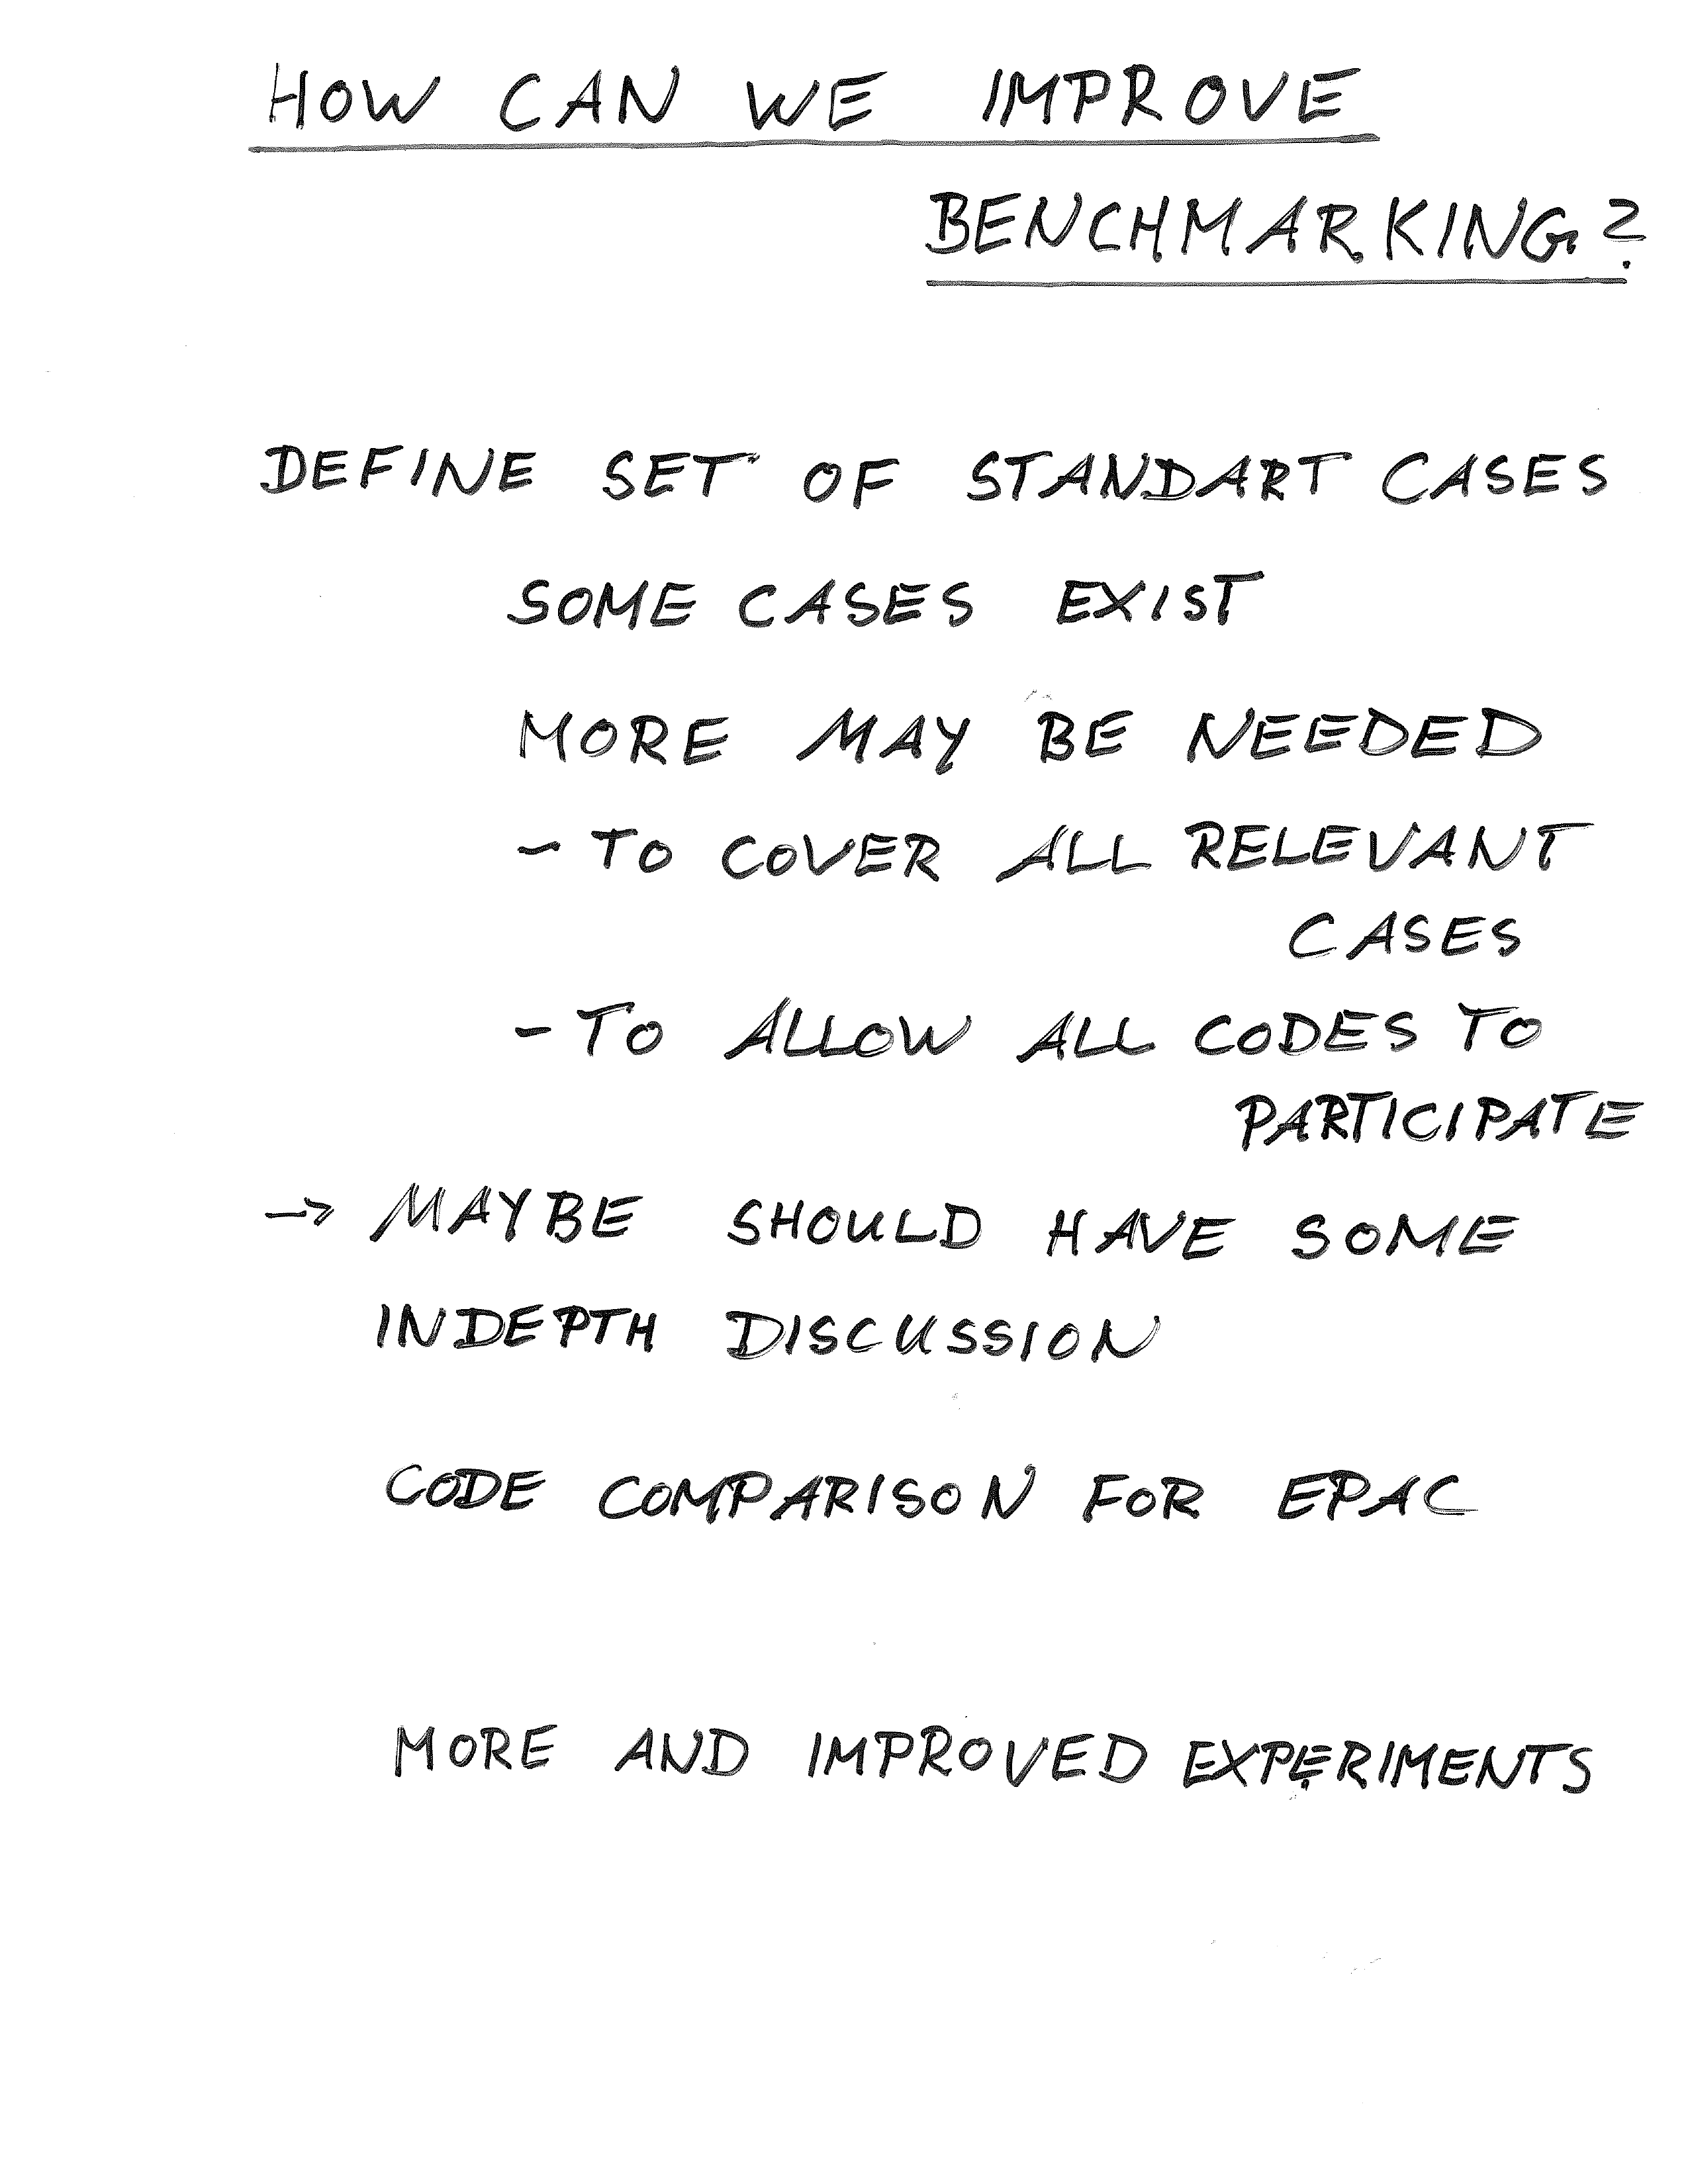 HOW CAN WE IMPROVE
BENCHMARKING?
DEFINE SET OF STANDART CASES
SOME CASES EXIST
MORE MAY BE NEEDED
- TO COVER ALL RELEVANT
CASES
- TO ALLOW ALL CODES TO
PARTICIPATE
-> MAYBE SHOULD HAVE SOME
INDEPTH DISCUSSION
CODE COMPARISON FOR EPAC
MORE AND IMPROVED EXPERIMENTS